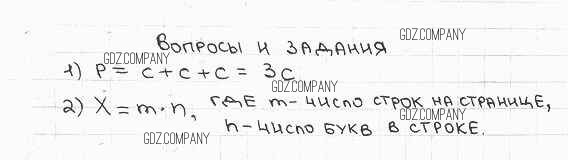 GDZ.COMPANY
Вопросы и задания
GDZ.COMPANY
1) P = c + c + c = 3c
GDZ.COMPANY
2) X = m · n, где m - число строк на странице,
GDZ.COMPANY
n - число букв в строке.
GDZ.COMPANY